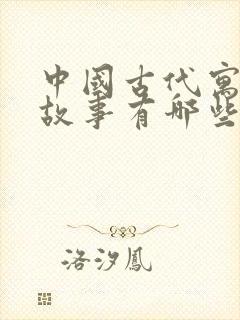 中國古代寓
故事有哪些
洛汐鳳